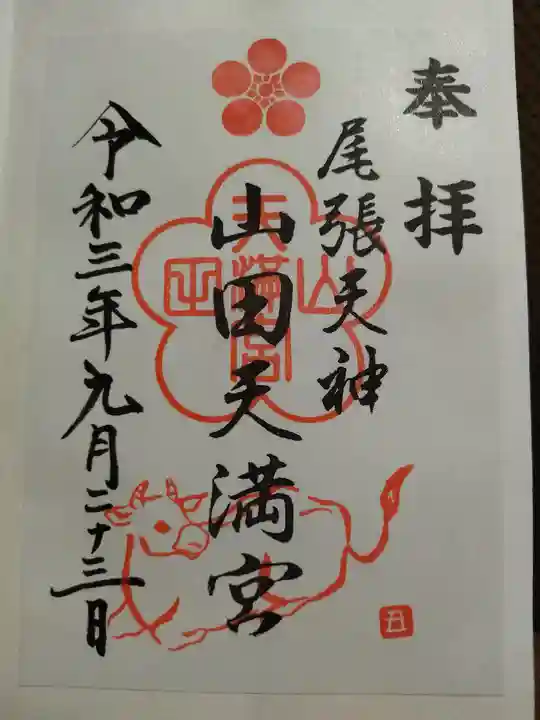 奉拝
尾張天神
山田天満宮
令和三年九月二十三日
山田
天満宮
丑